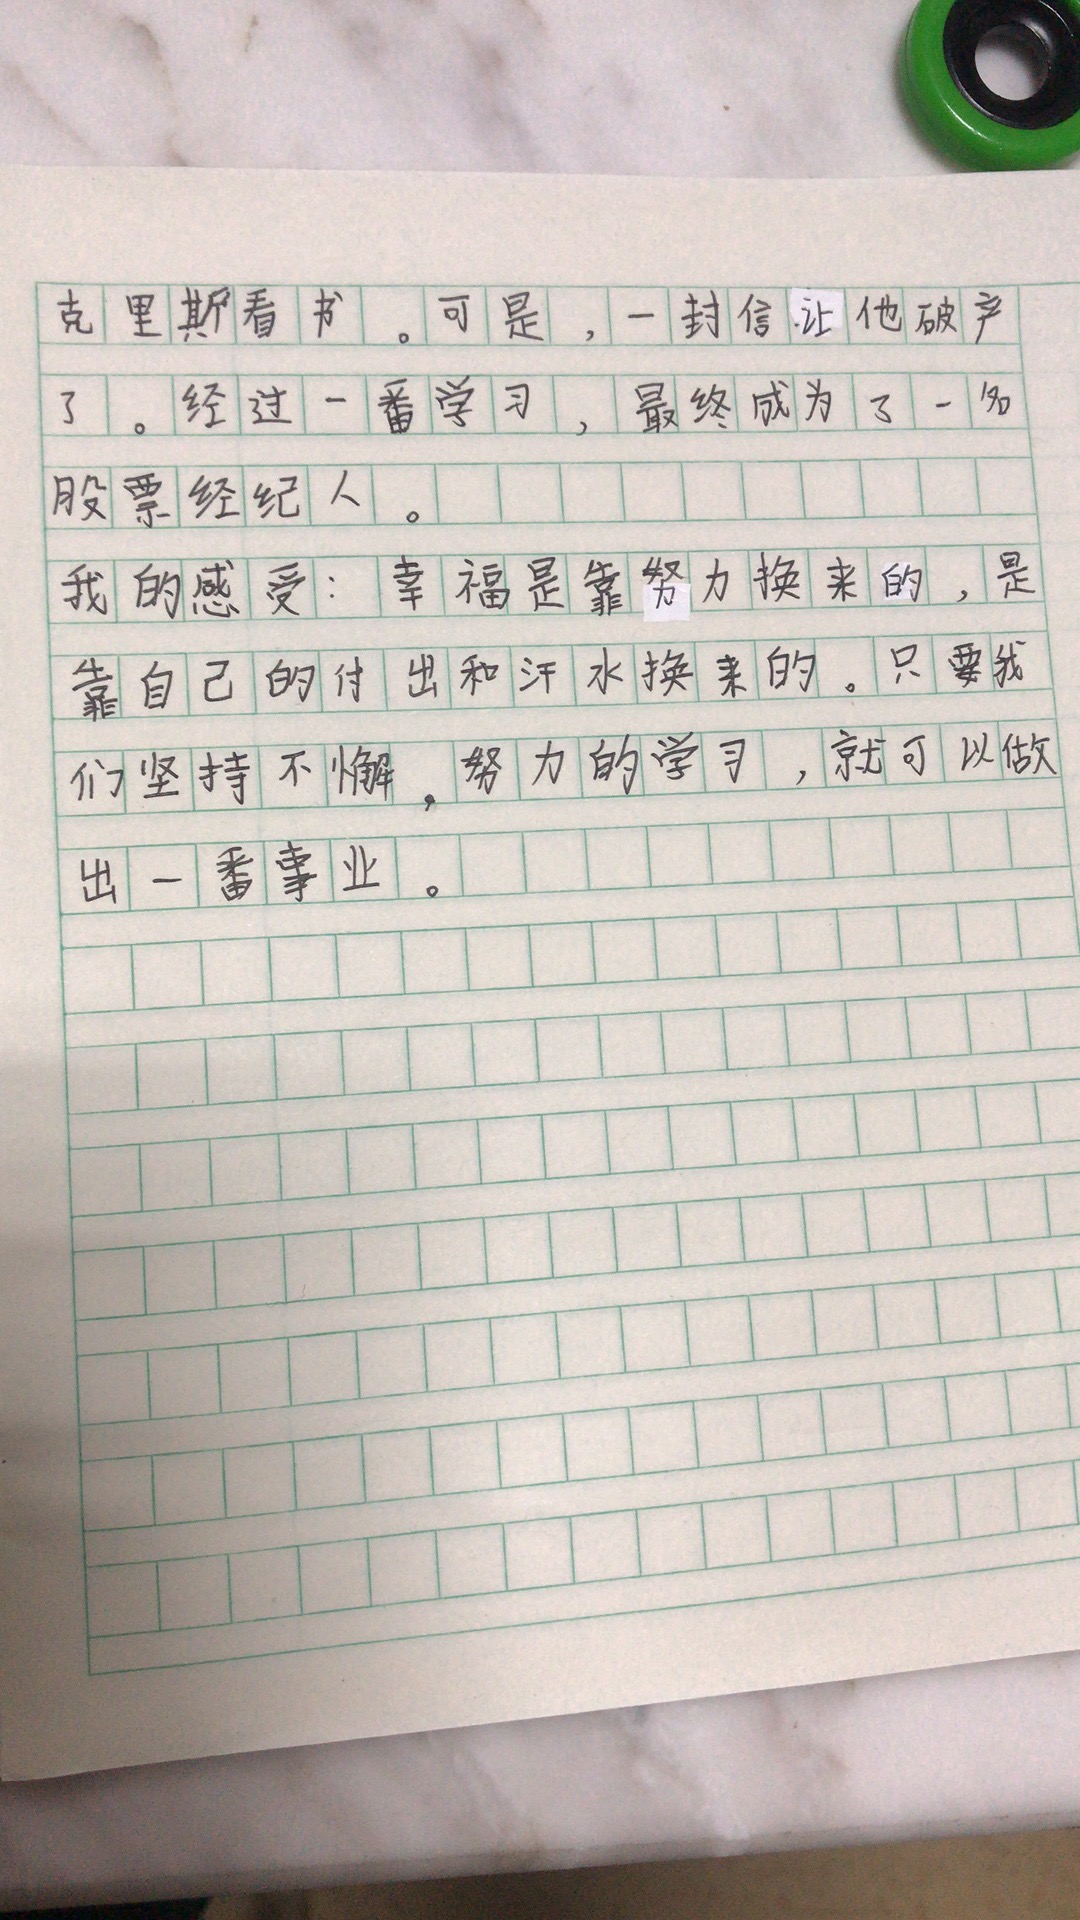 克里斯看书。可是，一封信让他破产
了。经过一番学习，最终成为了一名
股票经纪人。
我的感受：幸福是靠努力换来的，是
靠自己的付出和汗水换来的。只要我
们坚持不懈，努力的学习，就可以做
出一番事业。